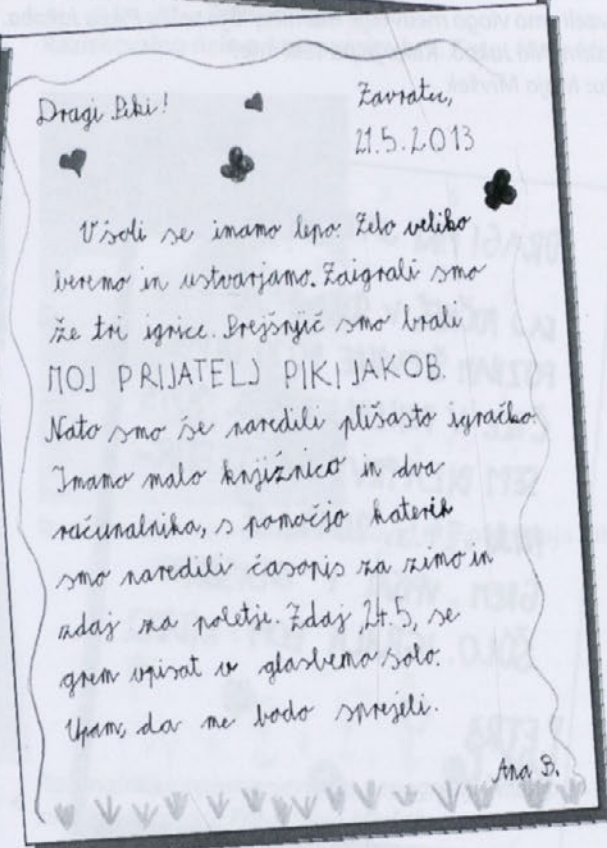 Dragi Piki!
Zavratec,
21.5.2013
V šoli se imamo lepo. Zelo veliko
beremo in ustvarjamo. Zaigrali smo
že tri igrice. Prejšnjič smo brali
MOJ PRIJATELJ PIKI JAKOB.
Nato smo še naredili plišasto igračko.
Imamo malo knjižnico in dva
računalnika, s pomočjo katerih
smo naredili časopis za zimo in
zdaj za poletje. Zdaj, 24.5, se
grem vpisat v glasbeno šolo.
Upam, da me bodo sprejeli.
Ana B.